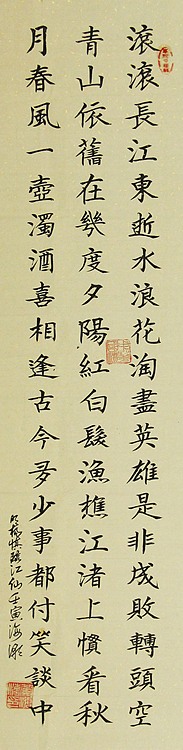 滾滾長江東逝水浪花淘盡英雄是非成敗轉頭空
青山依舊在幾度夕陽紅白髮漁樵江渚上慣看秋
月春風一壺濁酒喜相逢古今多少事都付笑談中
明楊慎臨江仙壬寅海彤